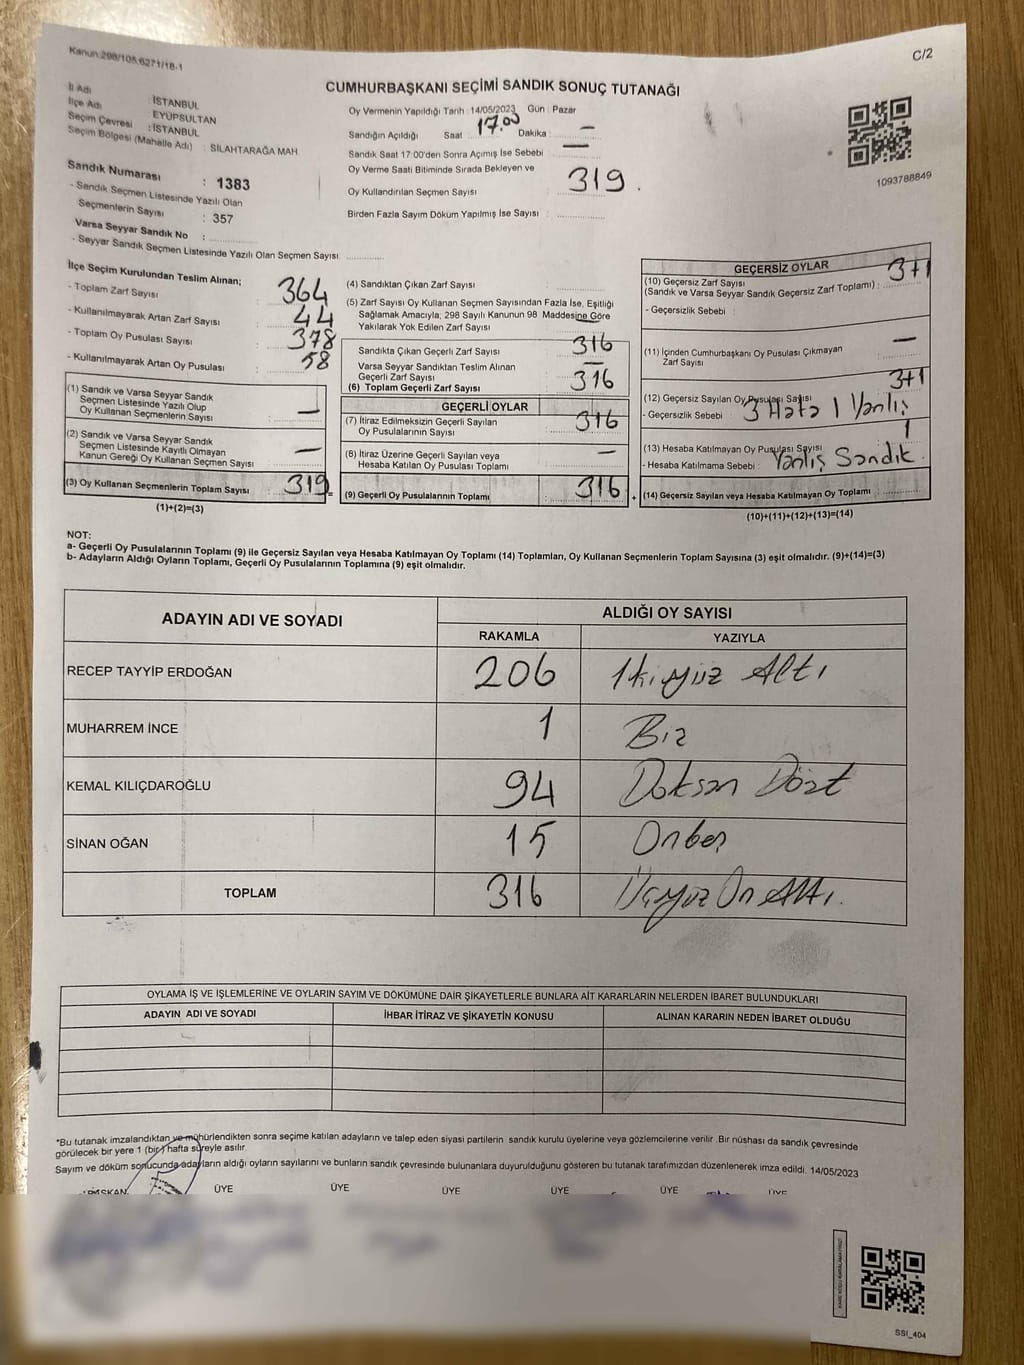 Kanun:298/105;6271/18-1
C/2
CUMHURBAŞKANI SEÇİMİ SANDIK SONUÇ TUTANAĞI
İl Adı : İSTANBUL
İlçe Adı : EYÜPSULTAN
Seçim Çevresi : İSTANBUL
Seçim Bölgesi (Mahalle Adı) : SİLAHTARAĞA MAH.
Sandık Numarası : 1383
- Sandık Seçmen Listesinde Yazılı Olan
Seçmenlerin Sayısı : 357
Varsa Seyyar Sandık No :
- Seyyar Sandık Seçmen Listesinde Yazılı Olan Seçmen Sayısı:
Oy Vermenin Yapıldığı Tarih :14/05/2023 Gün : Pazar
Sandığın Açıldığı Saat : 17.00 Dakika : —
Sandık Saat 17:00'den Sonra Açımış İse Sebebi : —
Oy Verme Saati Bitiminde Sırada Bekleyen ve
Oy Kullandırılan Seçmen Sayısı : 319.
Birden Fazla Sayım Döküm Yapılmış İse Sayısı :
1093788849
İlçe Seçim Kurulundan Teslim Alınan;
- Toplam Zarf Sayısı : 364
- Kullanılmayarak Artan Zarf Sayısı : 44
- Toplam Oy Pusulası Sayısı : 378
- Kullanılmayarak Artan Oy Pusulası : 58
(1) Sandık ve Varsa Seyyar Sandık
Seçmen Listesinde Yazılı Olup
Oy Kullanan Seçmenlerin Sayısı : —
(2) Sandık ve Varsa Seyyar Sandık
Seçmen Listesinde Kayıtlı Olmayan
Kanun Gereği Oy Kullanan Seçmen Sayısı : —
(3) Oy Kullanan Seçmenlerin Toplam Sayısı : 319 =
(1)+(2)=(3)
(4) Sandıktan Çıkan Zarf Sayısı :
(5) Zarf Sayısı Oy Kullanan Seçmen Sayısından Fazla İse, Eşitliği
Sağlamak Amacıyla; 298 Sayılı Kanunun 98 Maddesine Göre
Yakılarak Yok Edilen Zarf Sayısı : —
Sandıkta Çıkan Geçerli Zarf Sayısı : 316
Varsa Seyyar Sandıktan Teslim Alınan
Geçerli Zarf Sayısı : —
(6) Toplam Geçerli Zarf Sayısı : 316
GEÇERLİ OYLAR
(7) İtiraz Edilmeksizin Geçerli Sayılan
Oy Pusulalarının Sayısı : 316
(8) İtiraz Üzerine Geçerli Sayılan veya
Hesaba Katılan Oy Pusulası Toplamı : —
(9) Geçerli Oy Pusulalarının Toplamı : 316 +
GEÇERSİZ OYLAR
(10) Geçersiz Zarf Sayısı
(Sandık ve Varsa Seyyar Sandık Geçersiz Zarf Toplamı) : 3+1
- Geçersizlik Sebebi :
(11) İçinden Cumhurbaşkanı Oy Pusulası Çıkmayan
Zarf Sayısı : —
(12) Geçersiz Sayılan Oy Pusulası Sayısı : 3+1
- Geçersizlik Sebebi : 3 Hata 1 Yanlış
(13) Hesaba Katılmayan Oy Pusulası Sayısı : 1
- Hesaba Katılmama Sebebi : Yanlış Sandık.
(14) Geçersiz Sayılan veya Hesaba Katılmayan Oy Toplamı :
(10)+(11)+(12)+(13)=(14)
NOT:
a- Geçerli Oy Pusulalarının Toplamı (9) ile Geçersiz Sayılan veya Hesaba Katılmayan Oy Toplamı (14) Toplamları, Oy Kullanan Seçmenlerin Toplam Sayısına (3) eşit olmalıdır. (9)+(14)=(3)
b- Adayların Aldığı Oyların Toplamı, Geçerli Oy Pusulalarının Toplamına (9) eşit olmalıdır.
ADAYIN ADI VE SOYADI ALDIĞI OY SAYISI
RAKAMLA YAZIYLA
RECEP TAYYİP ERDOĞAN 206 İkiyüz Altı
MUHARREM İNCE 1 Bir
KEMAL KILIÇDAROĞLU 94 Doksan Dört
SİNAN OĞAN 15 Onbeş
TOPLAM 316 Üçyüz On Altı.
OYLAMA İŞ VE İŞLEMLERİNE VE OYLARIN SAYIM VE DÖKÜMÜNE DAİR ŞİKAYETLERLE BUNLARA AİT KARARLARIN NELERDEN İBARET BULUNDUKLARI
ADAYIN ADI VE SOYADI İHBAR İTİRAZ VE ŞİKAYETİN KONUSU ALINAN KARARIN NEDEN İBARET OLDUĞU
*Bu tutanak imzalandıktan ve mühürlendikten sonra seçime katılan adayların ve talep eden siyasi partilerin sandık kurulu üyelerine veya gözlemcilerine verilir .Bir nüshası da sandık çevresinde
görülecek bir yere 1 (bir ) hafta süreyle asılır.
Sayım ve döküm sonucunda adayların aldığı oyların sayılarını ve bunların sandık çevresinde bulunanlara duyurulduğunu gösteren bu tutanak tarafımızdan düzenlenerek imza edildi. 14/05/2023
BAŞKAN ÜYE ÜYE ÜYE ÜYE ÜYE ÜYE
SSI_404